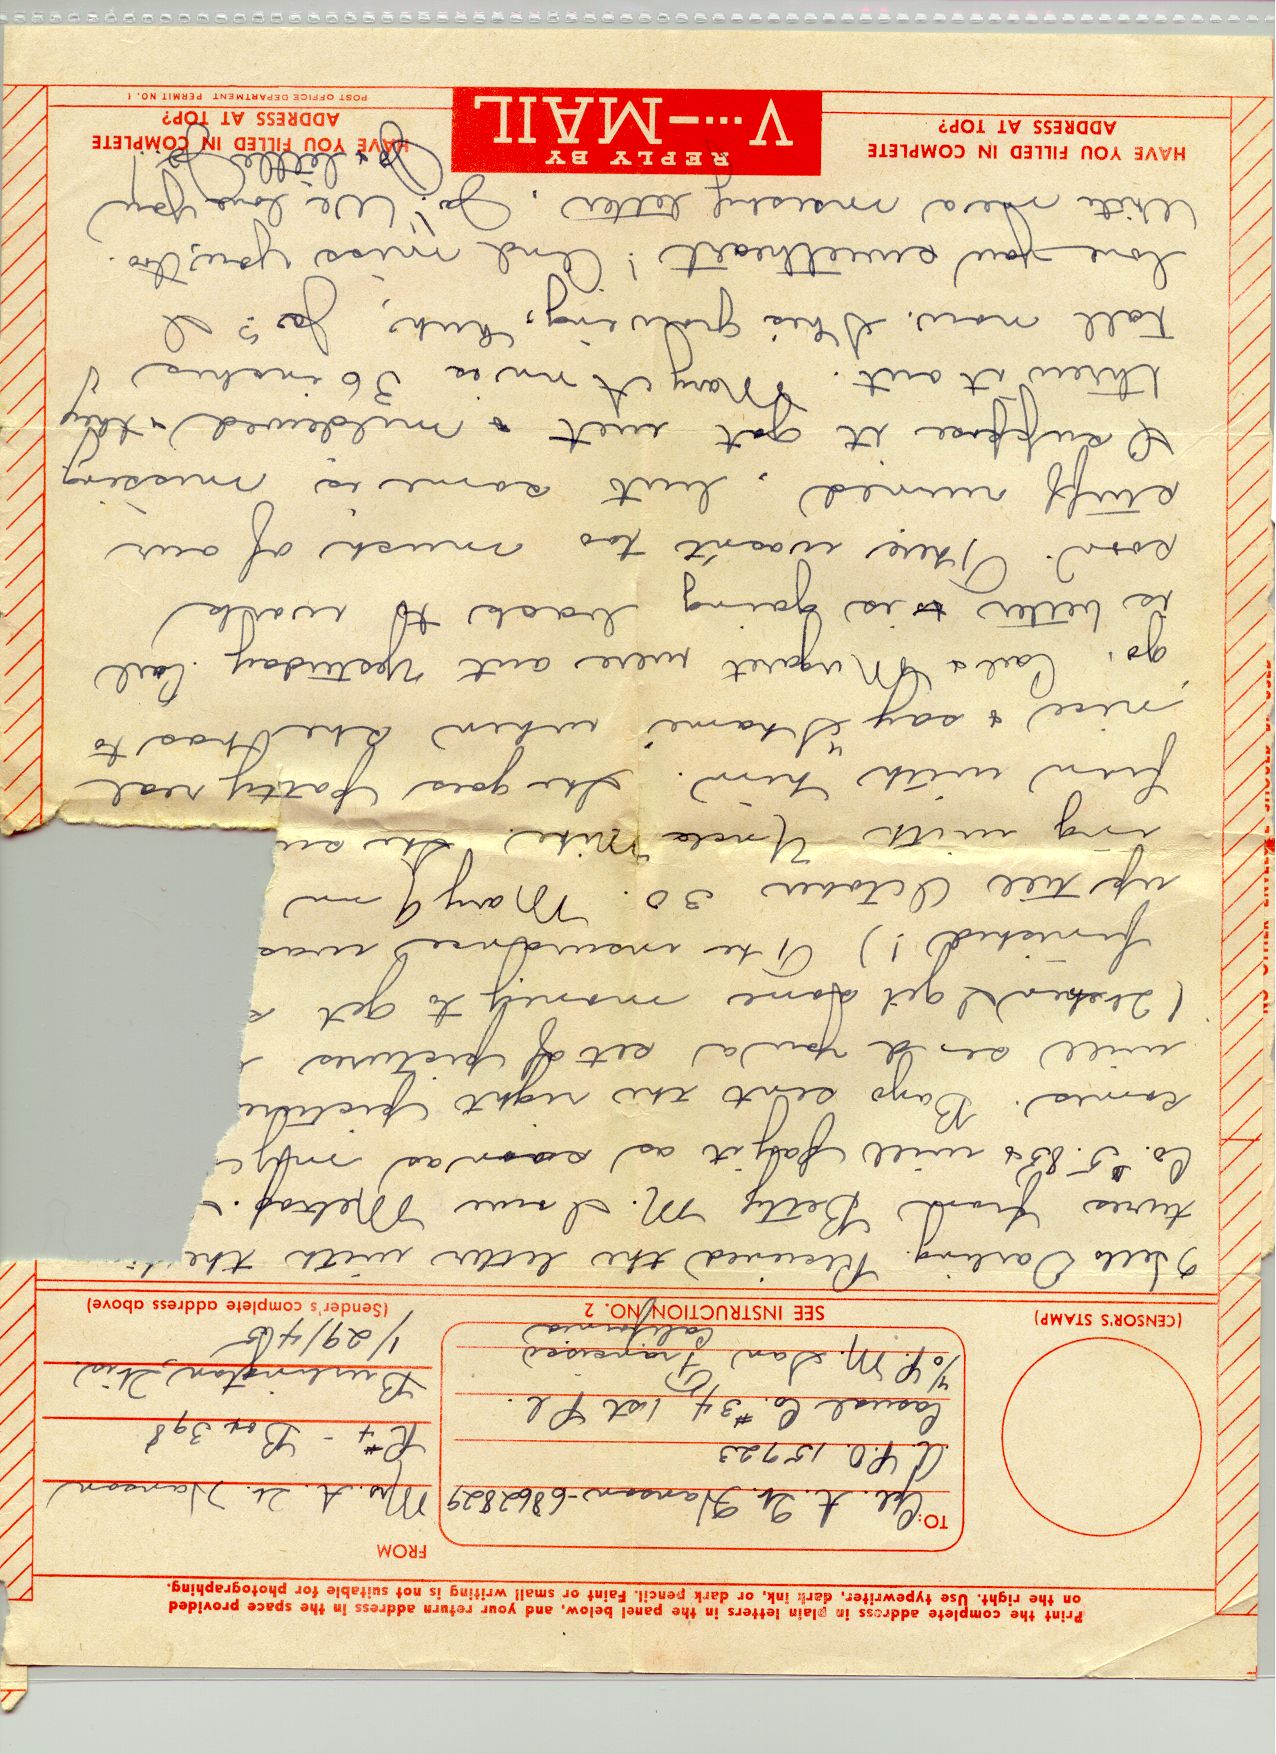 Print the complete address in plain letters in the panel below, and your return address in the space provided
on the right. Use typewriter, dark ink, or dark pencil. Faint or small writing is not suitable for photographing.
FROM
TO:
Cpl. A. H. Hanson-6862829
A.P.O. 15923
Casual Co. #34, 1st Pl.
c/o P.M. San Francisco
California
Mrs. A. H. Hanson
R#4 - Box 398
Burlington, Wis.
1/29/45
(CENSOR'S STAMP)
SEE INSTRUCTION NO. 2
(Sender's complete address above)
Hello Darling. Received the letter with the
tures from Betty M. I owe Metrop.
Co. $5.85 & will pay it as soon as my
comes. Bayo sent the right
will send you a set of pictures
get some money to get
finished!) The insurance was
up till October 30. Mary Ann
ing with Uncle Mike. She
fun with him. She goes Patty real
nice & say "Shame" when she has to
go. Carl & Margaret were out yesterday. Carl
is better & is going back to work
soon. There wasn't too much of our
stuff ruined, but some is missing.
I suppose it got wet & mildewed & they
threw it out. Mary Ann is 36 inches
tall now. She's growing, huh, Pa? I
love you sweetheart! And miss you, too.
Write me a mushy letter, Pa! We love you!!
HAVE YOU FILLED IN COMPLETE
ADDRESS AT TOP?
REPLY BY
V···—MAIL
HAVE YOU FILLED IN COMPLETE
ADDRESS AT TOP?
POST OFFICE DEPARTMENT PERMIT NO. 1